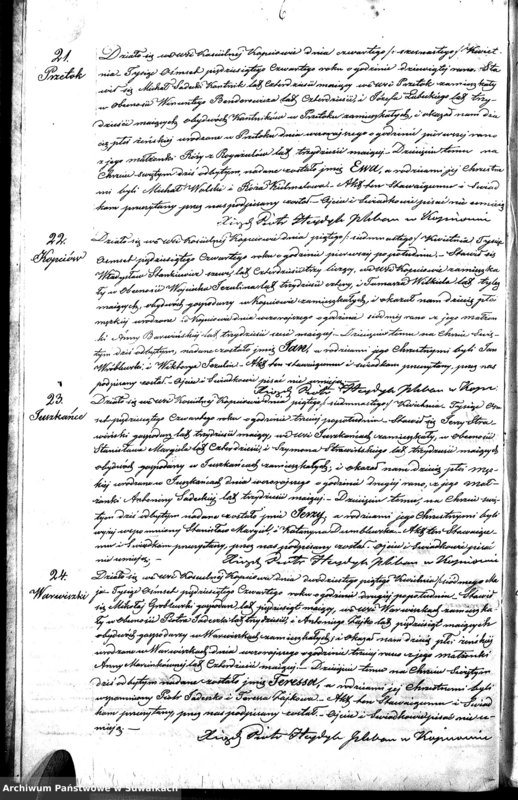 6
21.
Przetok
Działo się we wsi Kościelnej Kopciowie dnia czwartego /: szesnastego :/ Kwiet-
nia Tysiąc Ośmset pięćdziesiątego Czwartego roku o godzinie dziewiątej rano. Sta-
wił się Michał Sadecki lat Czterdzieści mający we wsi Przetok zamieszkały
w obecności Wincentego Bondarewicza lat Czterdzieści i Józefa Lubeckiego lat trzy-
dzieści mających obydwóch w Przetoku zamieszkałych, i okazał nam dzie-
cię płci żeńskiej urodzone w Przetoku dnia wczorajszego o godzinie pierwszej rano
z jego małżonki Róży z lat trzydzieści mającej. Dziecięciu temu na
Chrzcie świętym dziś odbytym nadane zostało imię Ewa, a rodzicami jej Chrzestne-
mi byli Michał Wolski i Róża. Akt ten Stawającemu i świad-
kom przeczytany przez nas podpisany został. Ojciec i Świadkowie pisać nie umieją
Xiądz Piotr Heydyk Pleban w Kopciowie
22.
Kopciów
Działo się we wsi Kościelnej Kopciowie dnia piątego /: siedmnastego :/ Kwietnia Tysiąc
Ośmset pięćdziesiątego Czwartego roku o godzinie pierwszej popołudniu. Stawił się
Władysław Stankiewicz lat Czterdzieści trzy liczący, we wsi Kopciowie zamieszka-
ły w obecności Wojciecha lat trzydzieści cztery, i Tomasza lat tyleż
mających, obydwóch gospodarzy w Kopciowie zamieszkałych, i okazał nam dziecię płci
męskiej urodzone w Kopciowie dnia wczorajszego o godzinie siódmej rano z jego małżon-
ki Anny lat trzydzieści mającej. Dziecięciu temu na Chrzcie świę-
tym dziś odbytym, nadane zostało imię Jan, a rodzicami jego Chrzestnymi byli Jan
i Wiktorya. Akt ten stawającemu i świadkom przeczytany, przez nas
podpisany został. Ojciec i Świadkowie pisać nie umieją
Xiądz Piotr Heydyk Pleban w Kopc.
23.
Juszkańce
Działo się we wsi Kościelnej Kopciowie dnia piątego /: siedmnastego :/ Kwietnia Tysiąc Oś-
set pięćdziesiątego Czwartego roku o godzinie trzeciej popołudniu. Stawił się Jerzy
gospodarz lat trzydzieści mający, we wsi Juszkańcach zamieszkały, w obecności
Stanisława lat Czterdzieści, i Szymona lat trzydzieści mających
obydwóch gospodarzy w Juszkańcach zamieszkałych, i okazał nam dziecię płci mę-
skiej urodzone w Juszkańcach dnia wczorajszego o godzinie drugiej rano, z jego mał-
żonki Antoniny Sadeckiej lat trzydzieści mającej. Dziecięciu temu, na Chrzcie świę-
tym dziś odbytym nadane zostało imię Jerzy, a rodzicami jego Chrzestnymi byli
wyżej wspomniony Stanisław i Katarzyna. Akt ten Stawające-
mu i Świadkom przeczytany, przez nas podpisany został. Ojciec i Świadkowie pisać
nie umieją.
Xiądz Piotr Heydyk Pleban w Kopciowie
24.
Warwiszki
Działo się we wsi Kościelnej Kopciowie dnia dwudziestego piątego Kwietnia /: siódmego Ma-
ja :/ Tysiąc Ośmset pięćdziesiątego Czwartego roku o godzinie drugiej popołudniu. Stawił
się Mikołaj gospodarz lat pięćdziesiąt mający, we wsi Warwiszkach zamieszka-
ły w obecności Piotra lat trzydzieści, i Antoniego lat pięćdziesiąt mających
obydwóch gospodarzy w Warwiszkach zamieszkałych, i okazał nam dziecię płci żeńskiej
urodzone w Warwiszkach dnia wczorajszego o godzinie trzeciej rano z jego małżonki
Anny lat Czterdzieści mającej. Dziecięciu temu na Chrzcie Świętym
dziś odbytym nadane zostało imię Teressa, a rodzicami jej Chrzestnemi byli
wspomniony Piotr i. Akt ten Stawającemu i Świad-
kom przeczytany, przez nas podpisany został. Ojciec i Świadkowie pisać nie u-
mieją.
Xiądz Piotr Heydyk Pleban w Kopciowie
Archiwum Państwowe w Suwałkach